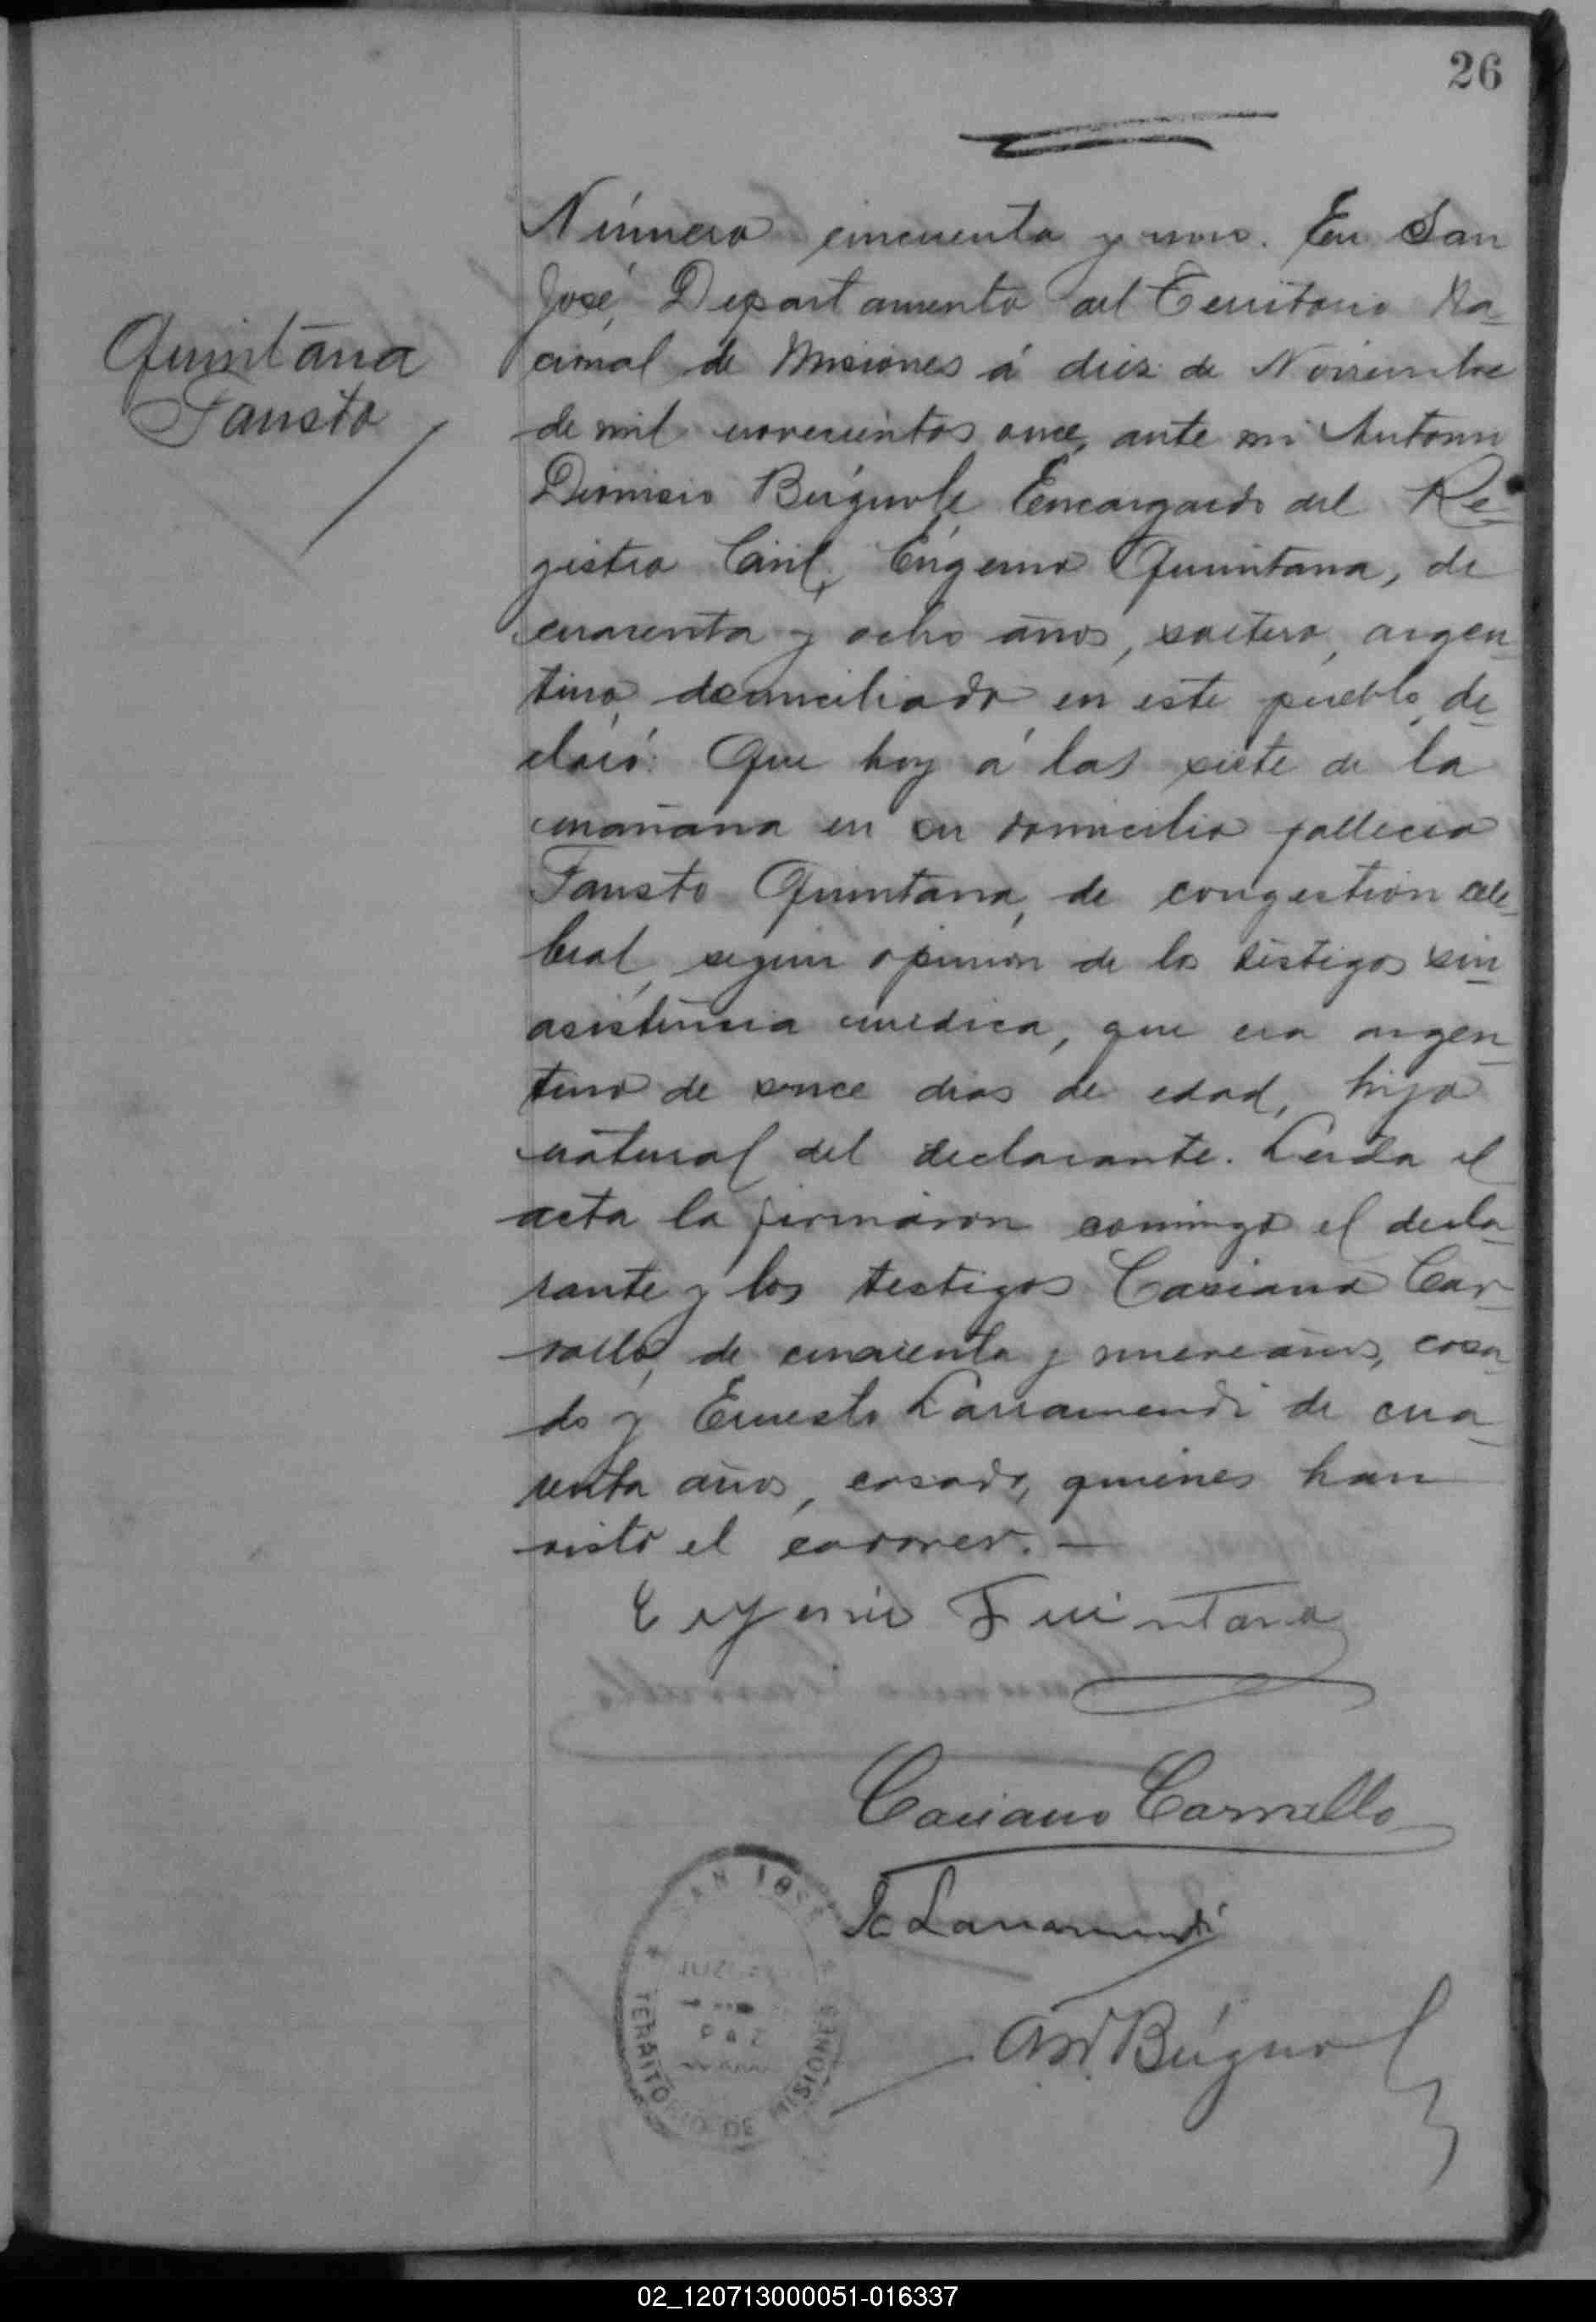 26
Quintana
Fausto
Número cincuenta y uno. En San
José, Departamento del Territorio Na-
cional de Misiones á diez de Noviembre
de mil novecientos once, ante mi Antonio
Dionisio Búgnole, Encargado del Re-
gistro Civil, Eugenio Quintana, de
cuarenta y ocho años, soltero, argen-
tino, domiciliado en este pueblo, de-
claró: Que hoy á las siete de la
mañana en su domicilio falleció
Fausto Quintana, de congestión cele-
bral, según opinión de los testigos sin
asistencia médica, que era argen-
tino de once dias de edad, hijo
natural del declarante. Leida el
acta la firmaron conmigo el decla-
rante y los testigos Casiano Car-
vallo, de cuarenta y nueve años, casa-
do y Ernesto Larramendi de cua-
renta años, casado, quienes han
visto el cadáver. —
Eugenio Quintana
Casiano Carvallo
E Larramendi
A.D. Búgnol
SAN JOSÉ
JUZ
PAZ
TERRITORIO DE MISIONES
02_120713000051-016337